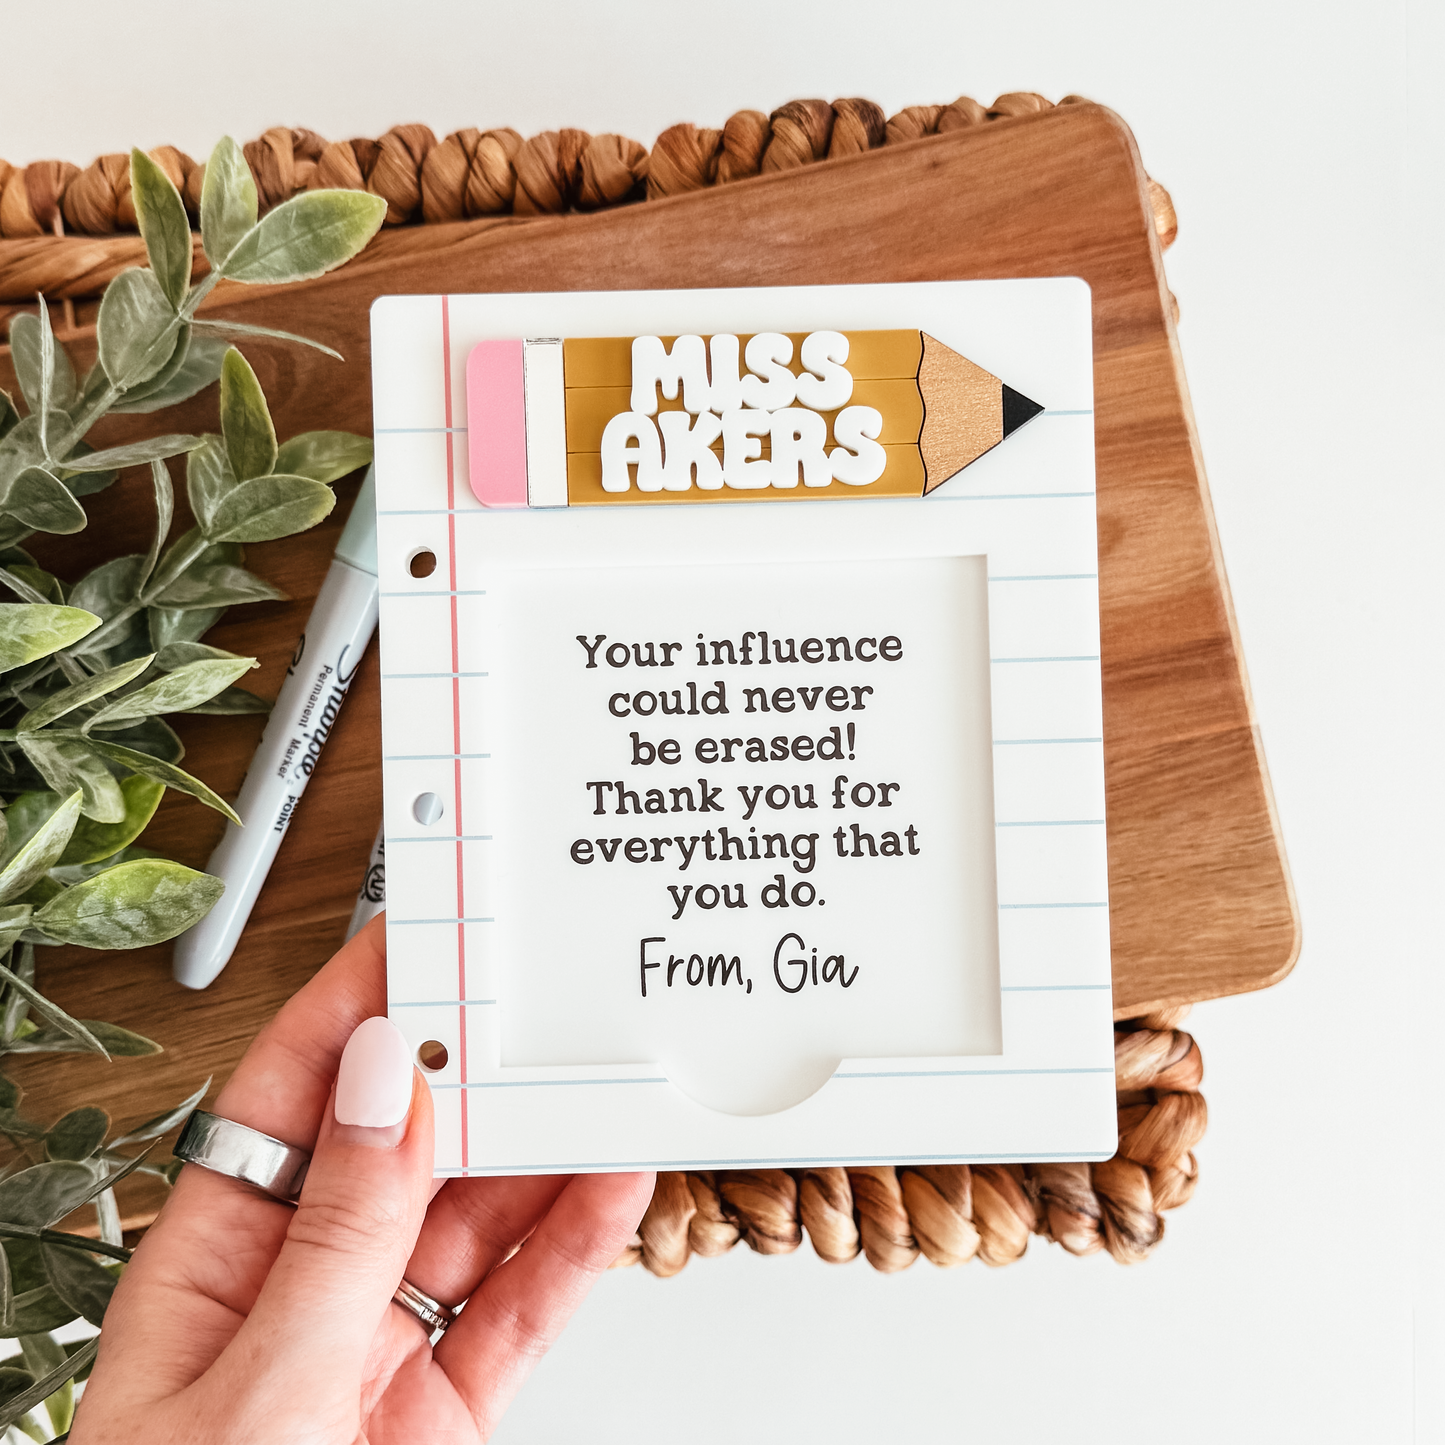 MISS
AKERS
Your influence
could never
be erased!
Thank you for
everything that
you do.
From, Gia
Sharpie
Permanent Marker
POINT